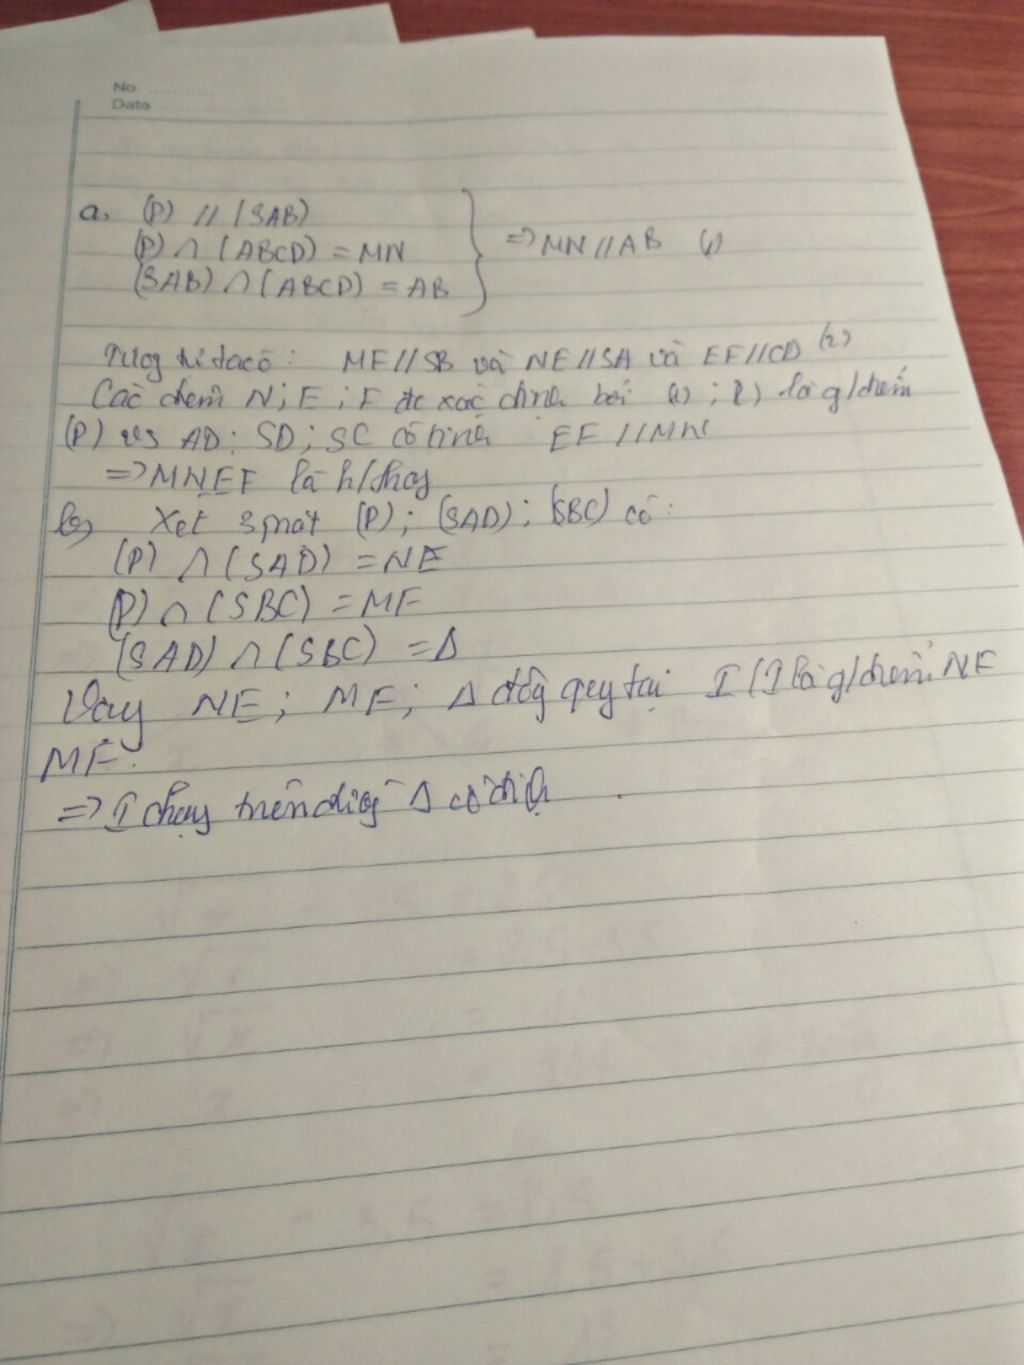 No.
Date
a, (P) // (SAB)
(P) ∩ (ABCD) = MN
(SAB) ∩ (ABCD) = AB
=> MN // AB (1)
Tương tự ta có : MF // SB và NE // SA và EF // CD (2)
Các điểm N ; E ; F đc xác định bởi (1) ; (2) là g/điểm
(P) vs AD ; SD ; SC có hình EF // MN
=> MNEF là h/thag
b, Xét 3 mặt (P) ; (SAD) ; (SBC) có :
(P) ∩ (SAD) = NE
(P) ∩ (SBC) = MF
(SAD) ∩ (SBC) = Δ
Vậy NE ; MF ; Δ đồg quy tại I (I là g/điểm NE
MF.
=> I chạy trên đ Δ cố địh .